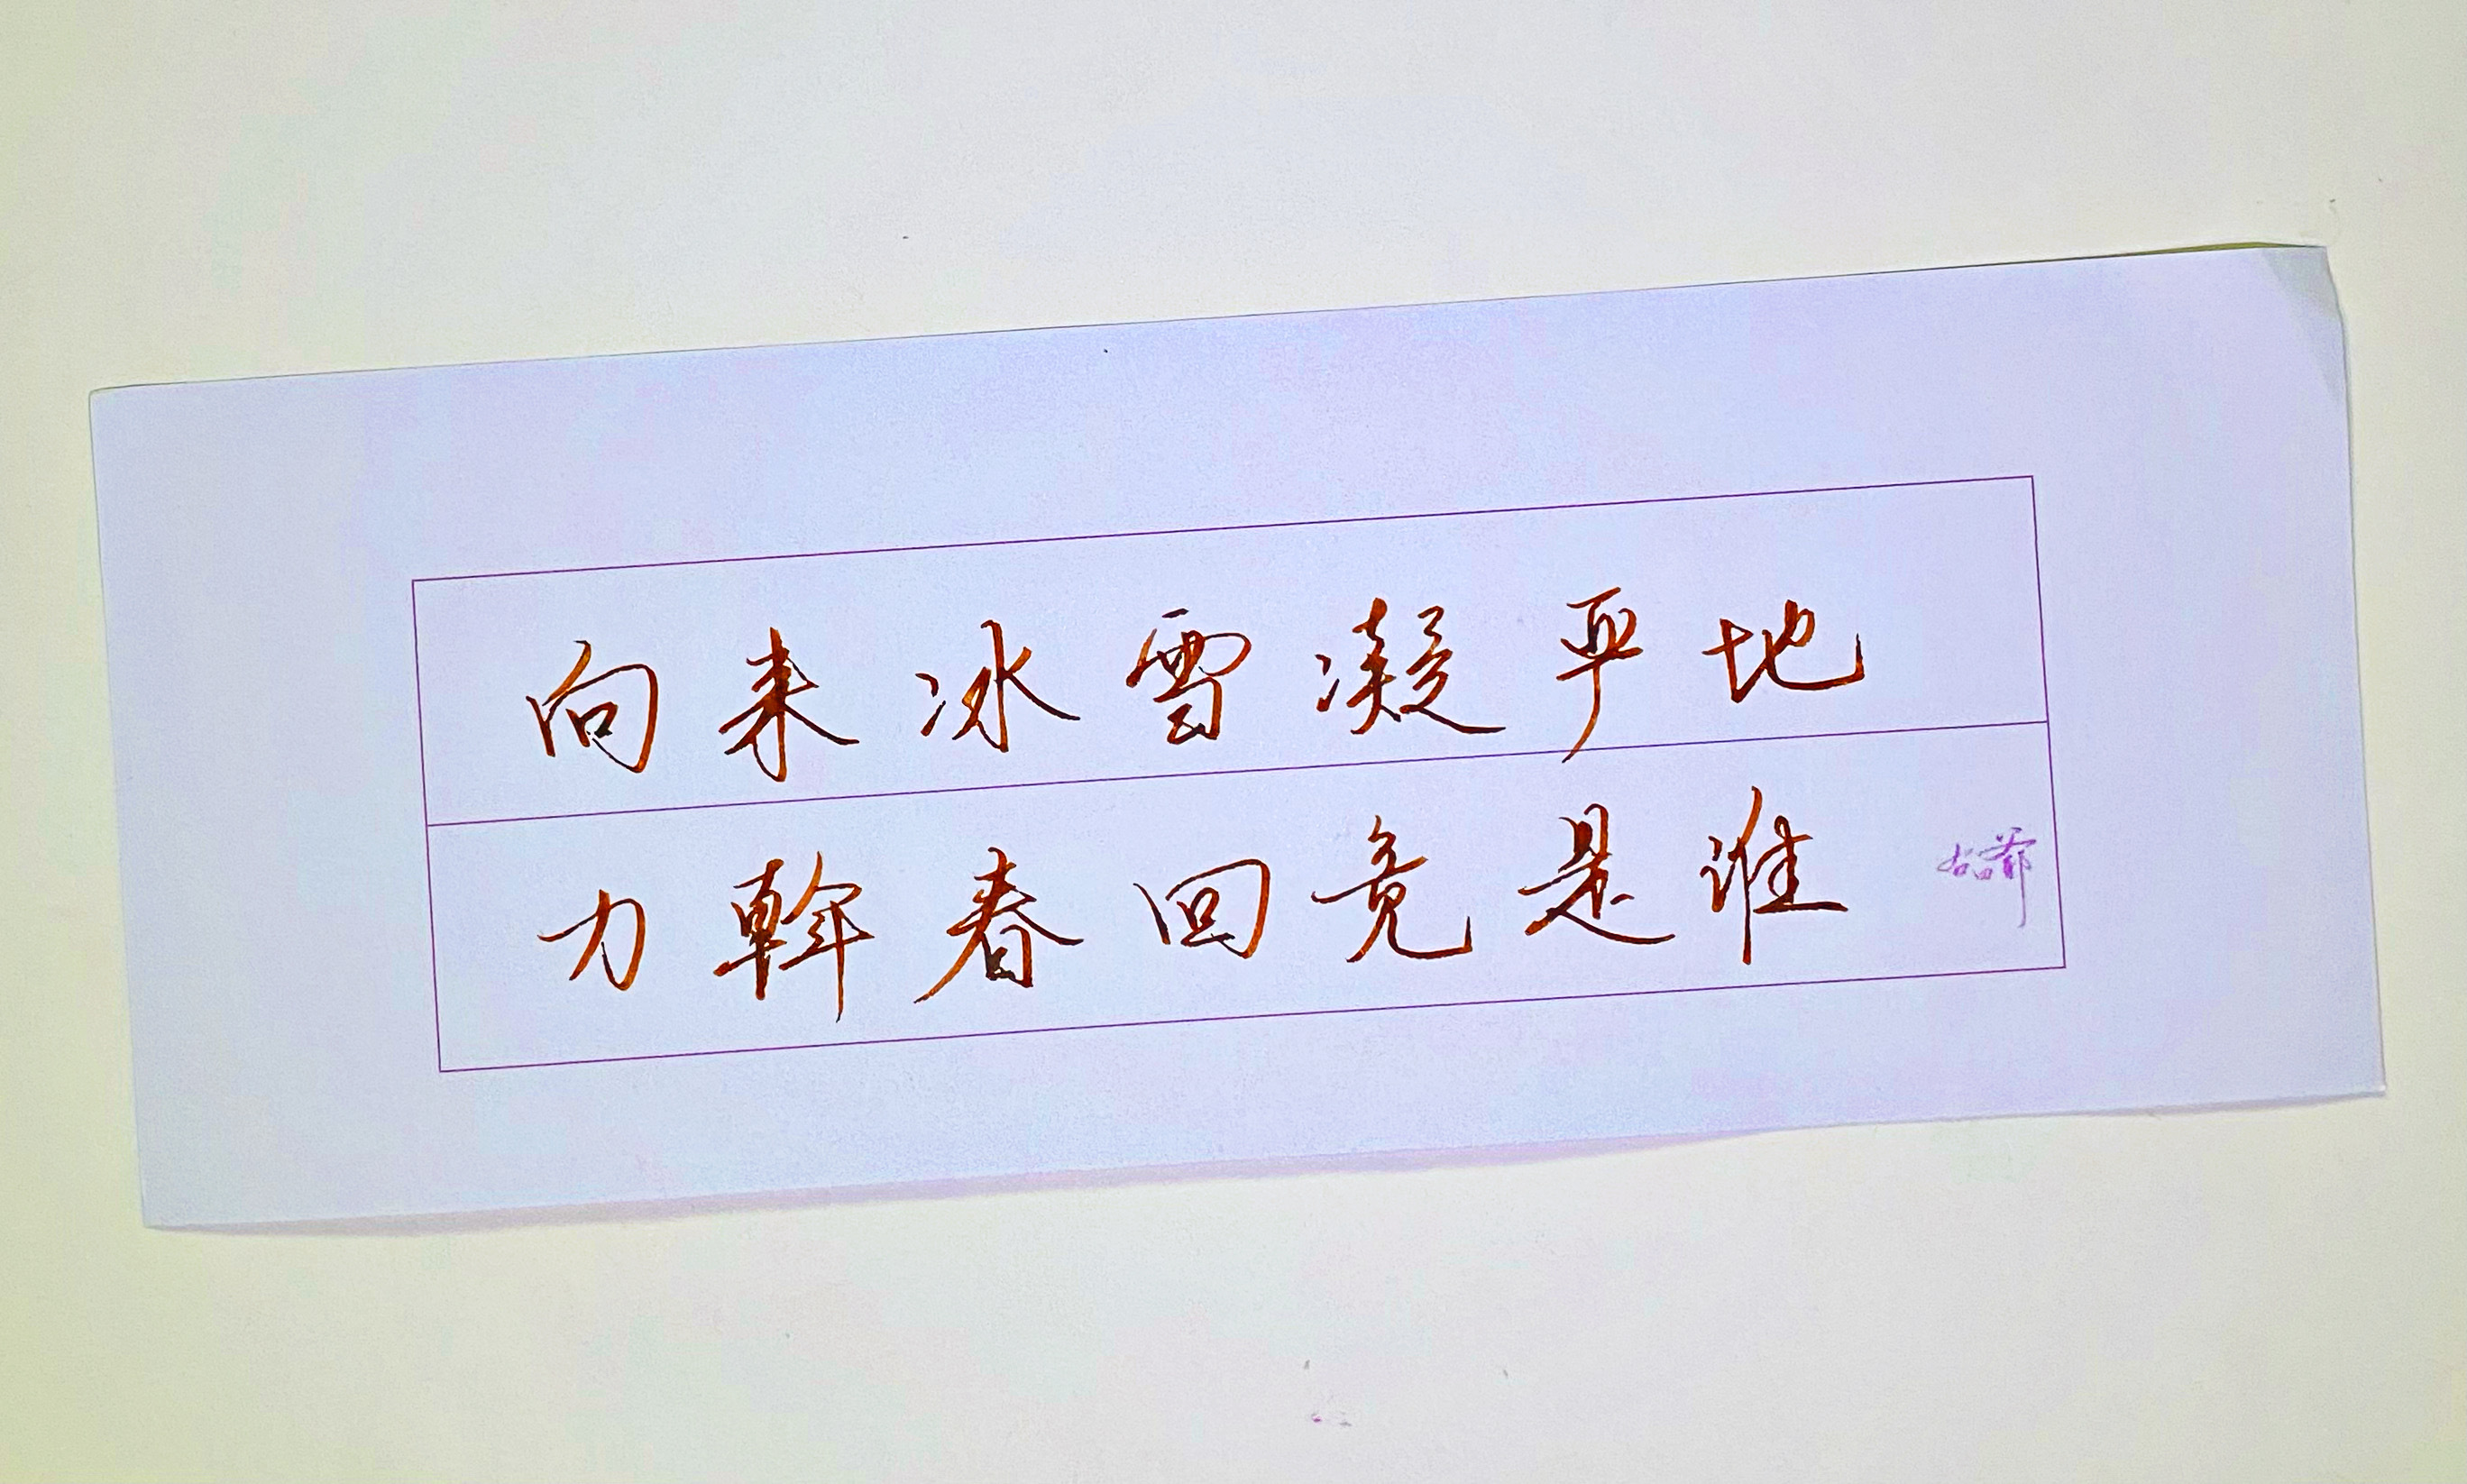 向来冰雪凝平地
力斡春回竟是谁